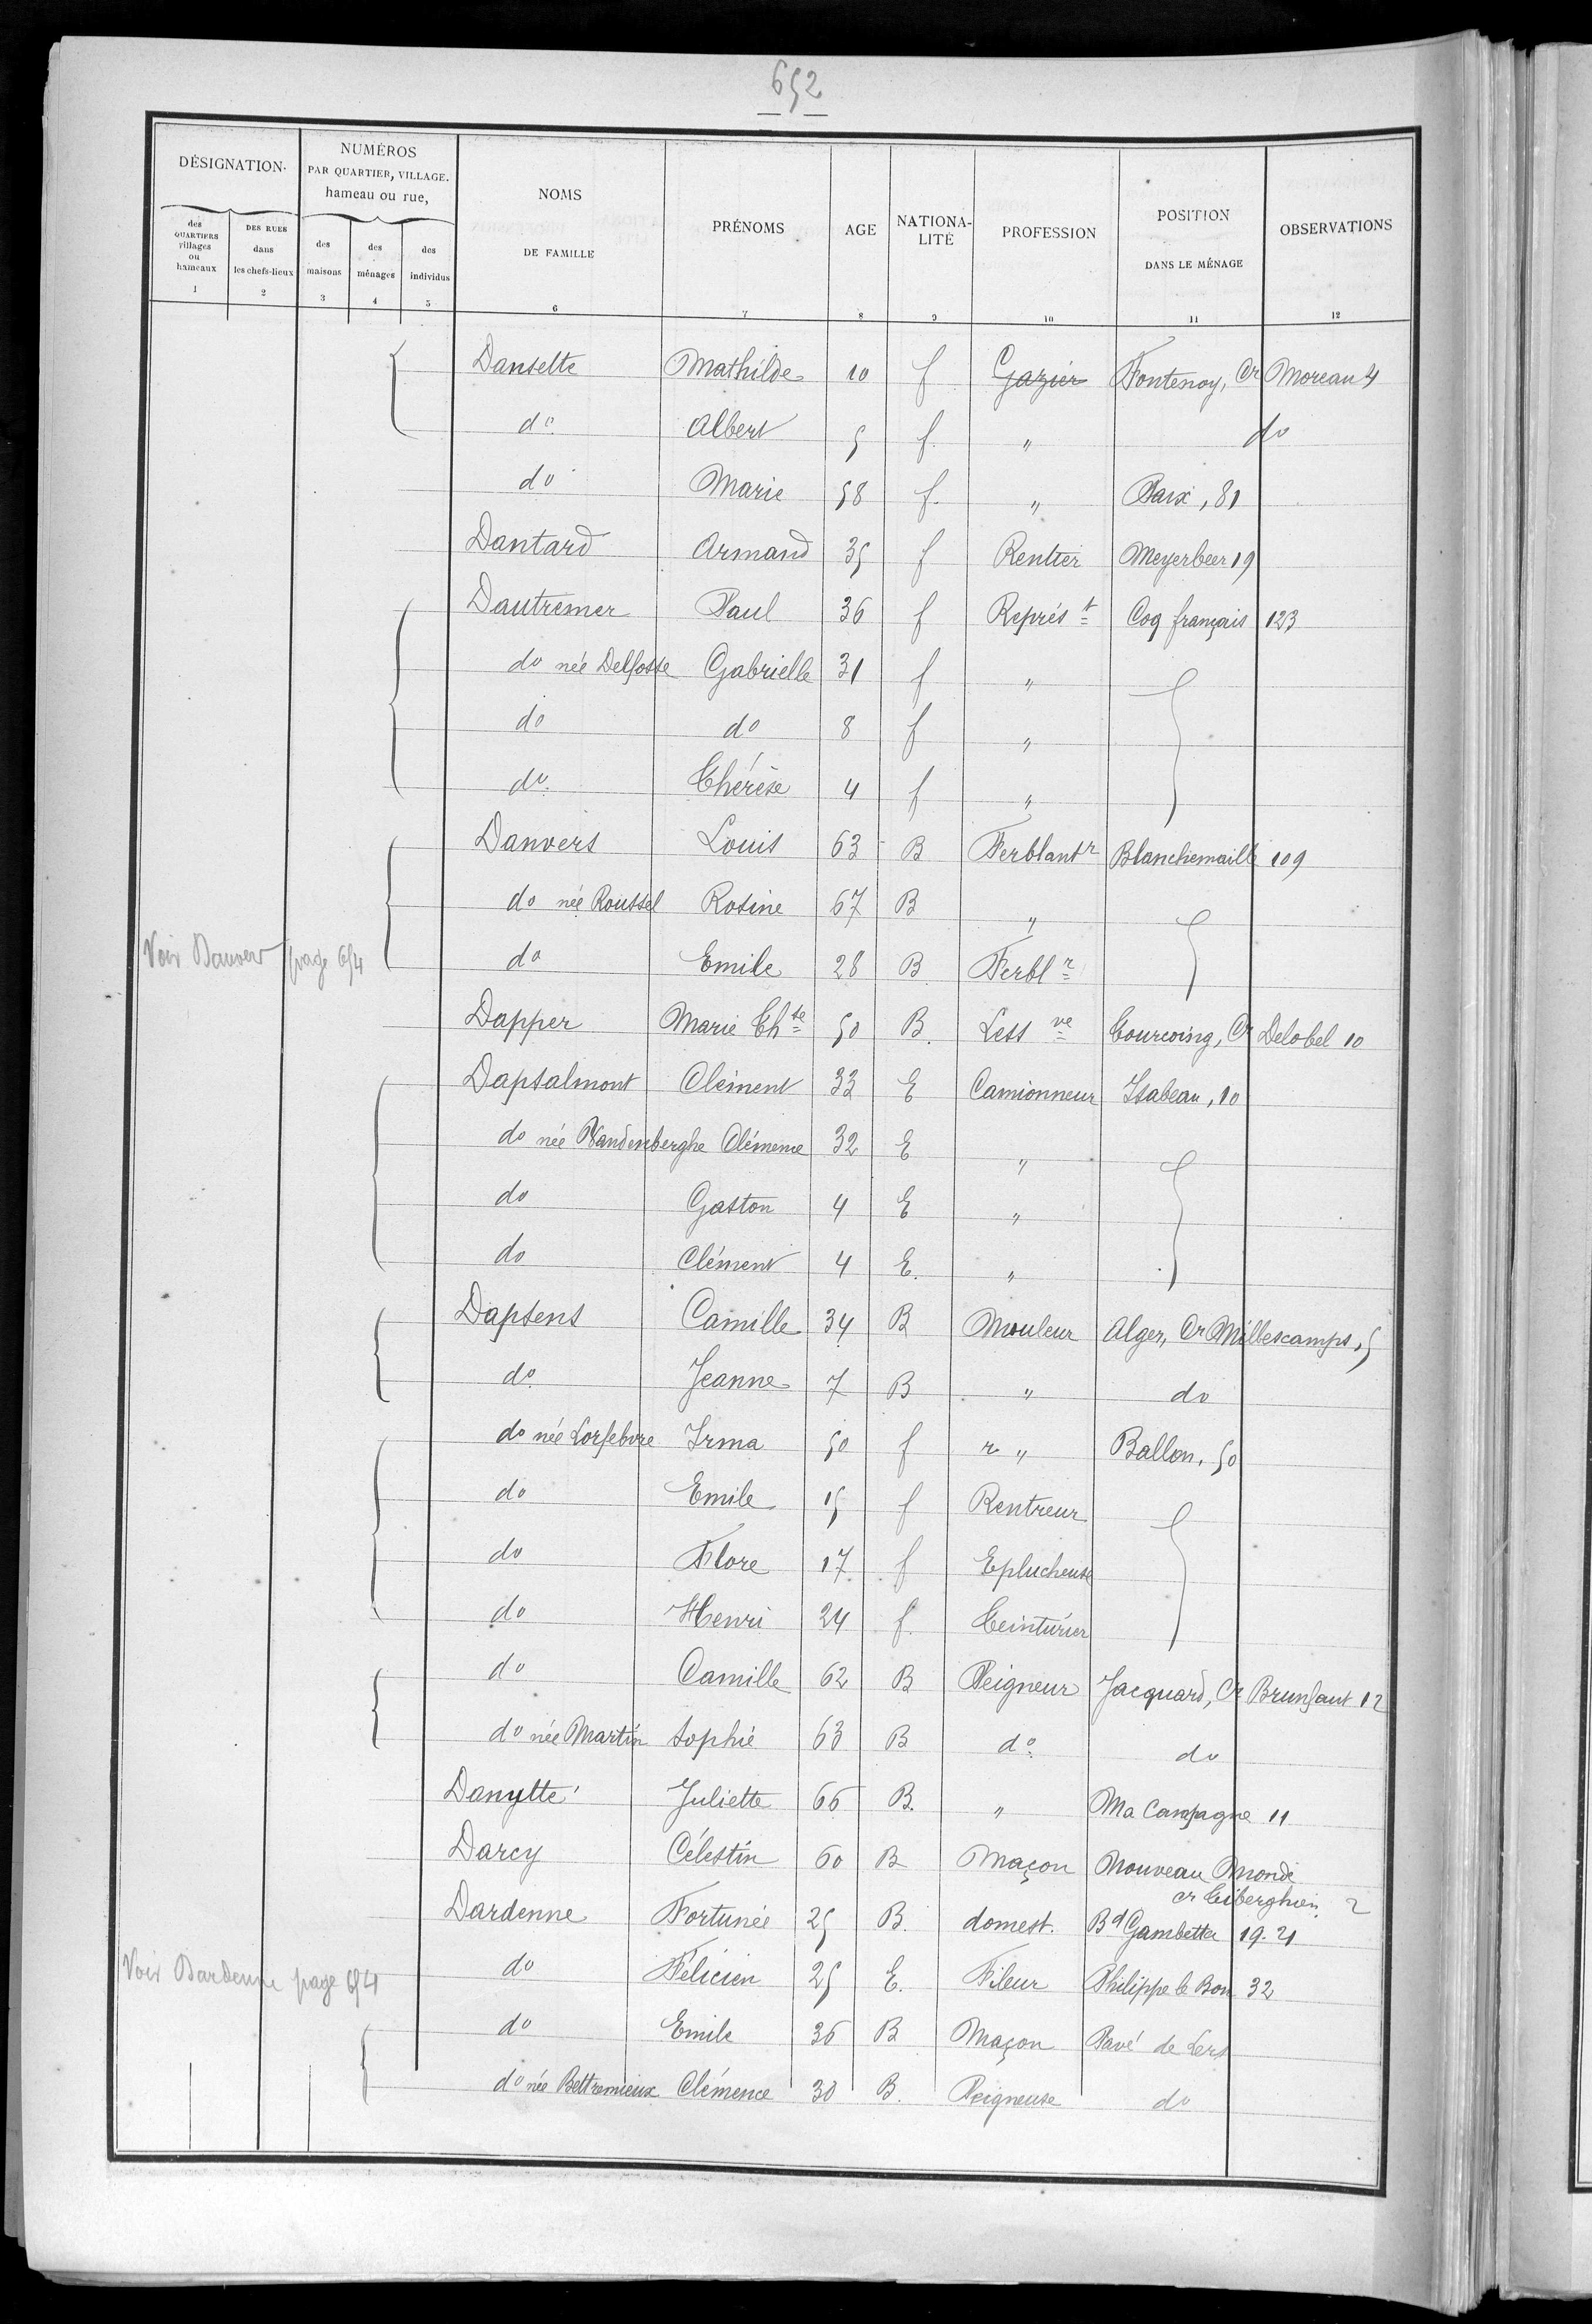 652
DÉSIGNATION.
NUMÉROS PAR QUARTIER, VILLAGE. hameau ou rue,
NOMS DE FAMILLE
PRÉNOMS
AGE
NATIONALITÉ
PROFESSION
POSITION DANS LE MÉNAGE
OBSERVATIONS
des QUARTIERS villages ou hameaux
DES RUES dans les chefs-lieux
des maisons
des ménages
des individus
1 2 3 4 5 6 7 8 9 10 11 12
Dansette Mathilde 10 f Gazier Fontenoy, Cr Moreau 4
do Albert 5 f. " do
do Marie 58 f. " Paix, 81
Dantard Armand 35 f Rentier Meyerbeer 19
Dautremer Paul 36 f Représt Coq français 123
do née Delfosse Gabrielle 31 f "
do do 8 f "
do. Thérèse 4 f "
Danvers Louis 63 B Ferblantr Blanchemaille 109
do née Roussel Rosine 67 B "
Voir Dauver page 654
do Emile 28 B Ferblr
Dapper Marie Thse 50 B. Less ve Tourcoing, Cr Delobel 10
Dapsalmont Clément 33 E Camionneur Isabeau, 10
do née Vandenberghe Clémence 32 E "
do Gaston 4 E "
do Clément 4 E. "
Dapsens Camille 34 B Mouleur Alger, Cr Millescamps, 5
do Jeanne 7 B " do
do née Lorfebvre Irma 50 f " Ballon, 50
do Emile 15 f Rentreur
do Flore 17 f Eplucheuse
do Henri 24 f. Teinturier
do Camille 62 B Peigneur Jacquard, Cr Brunfaut 12
do née Martin Sophie 63 B do do
Danytté Juliette 66 B. " Ma Campagne 11
Darcy Célestin 60 B Maçon Nouveau Monde
cr Tiberghien 2
Dardenne Fortunée 25 B. domest. Bd Gambetta 19.21
Voir Dardenne page 654
do Félicien 25 E. Fileur Philippe le Bon 32
do Emile 36 B Maçon Pavé de Lers
do née Bettremieux Clémence 30 B. Peigneuse do